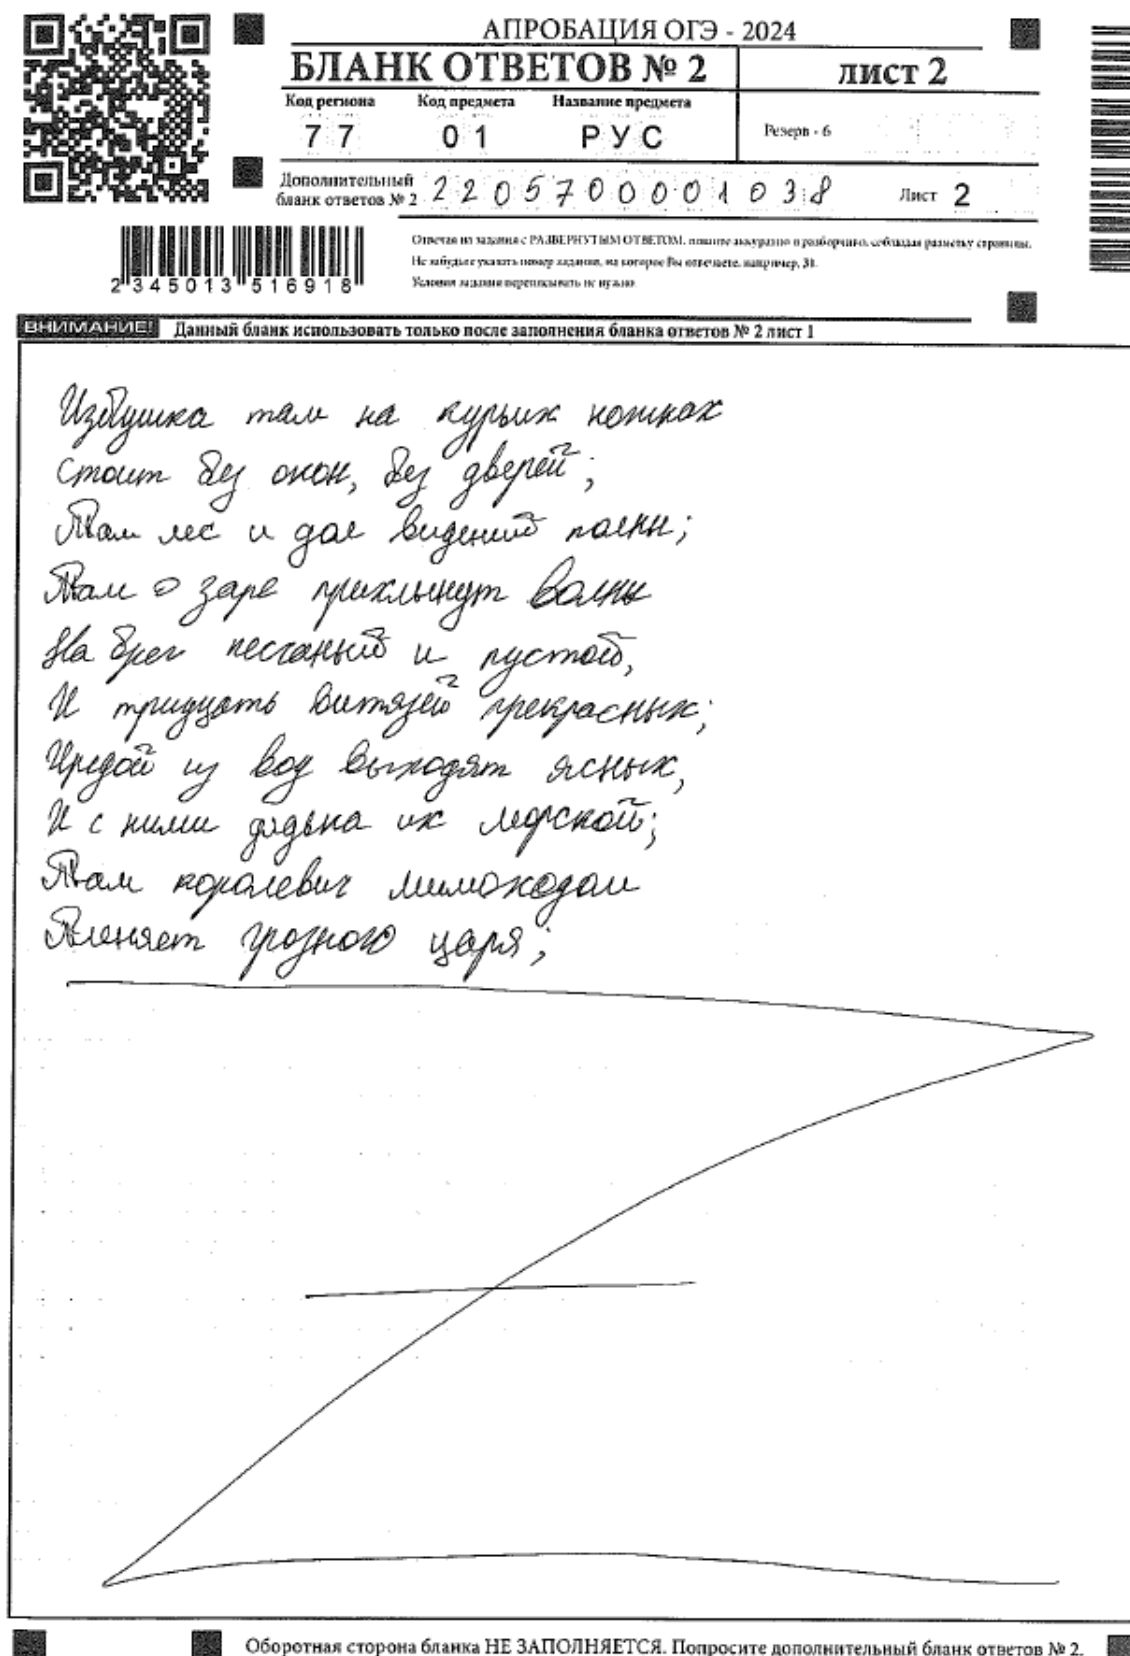 АПРОБАЦИЯ ОГЭ - 2024
БЛАНК ОТВЕТОВ № 2
лист 2
Код региона Код предмета Название предмета
77 01 РУС
Резерв - 6
Дополнительный
бланк ответов № 2
2205700001038
Лист 2
Отвечая на задания с РАЗВЕРНУТЫМ ОТВЕТОМ, пишите аккуратно и разборчиво, соблюдая разметку страницы.
Не забудьте указать номер задания, на которое Вы отвечаете, например, 31.
Условия задания переписывать не нужно.
2 345013 516918
ВНИМАНИЕ! Данный бланк использовать только после заполнения бланка ответов № 2 лист 1
Избушка там на курьих ножках
Стоит без окон, без дверей;
Там лес и дол видений полны;
Там о заре прихлынут волны
На брег песчаный и пустой,
И тридцать витязей прекрасных;
Чредой из вод выходят ясных,
И с ними дядька их морской;
Там королевич мимоходом
Пленяет грозного царя;
Оборотная сторона бланка НЕ ЗАПОЛНЯЕТСЯ. Попросите дополнительный бланк ответов № 2.